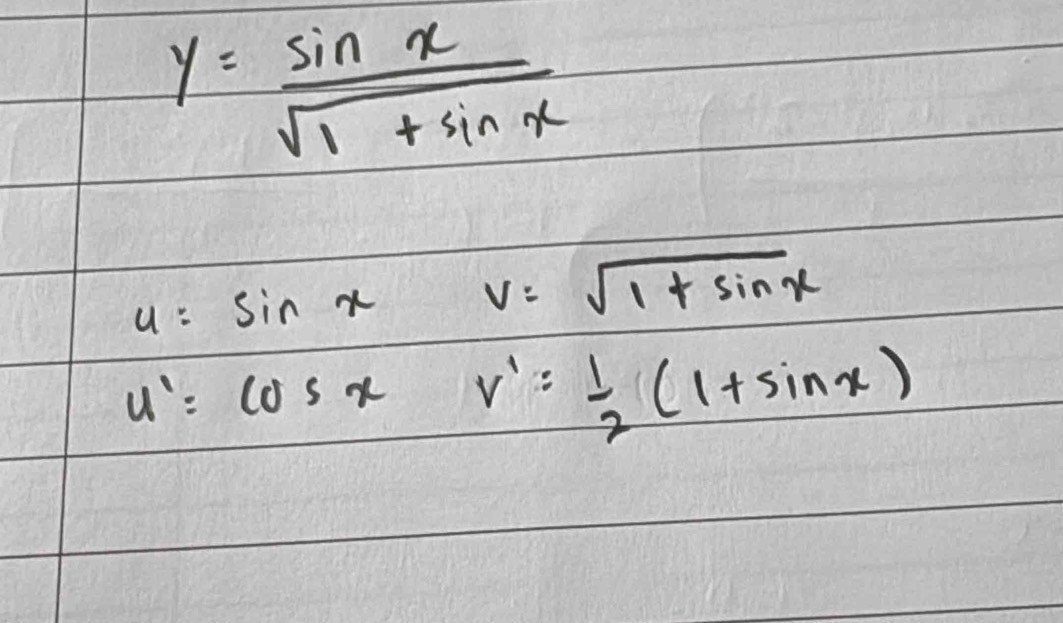 y = sin x / √1 + sin x
u = sin x v = √1 + sin x
u' = cos x v' = 1/2 (1 + sin x)